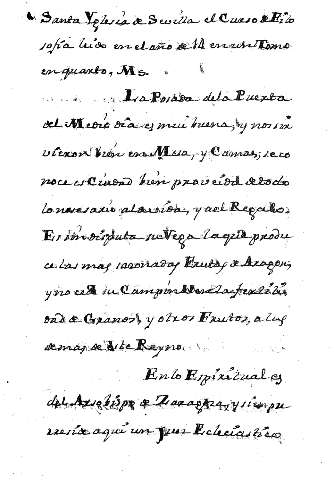 Santa Yglesia de Sevilla el Curso de Filo
sofia leido en el año de 14 en un Tomo
en quarto, Ms.
La Posada de la Puerta
del Medio dia es mui buena, y nos sir
vieron bien en Mesa, y Camas; se co
noce es Ciudad bien proveida de todo
lo necesario a la vida, y aol Regalo.
Es sin disputa su Vega la que produ
ce las mas sazonadas Frutas de Aragon,
y no cede su Campiña en la fertili
dad de Granos, y otros Frutos, a las
demas de este Reyno.
En lo Espiritual es
del Arzobispo de Zaragoza, y siempre
reside aqui un Juez Eclesiastico